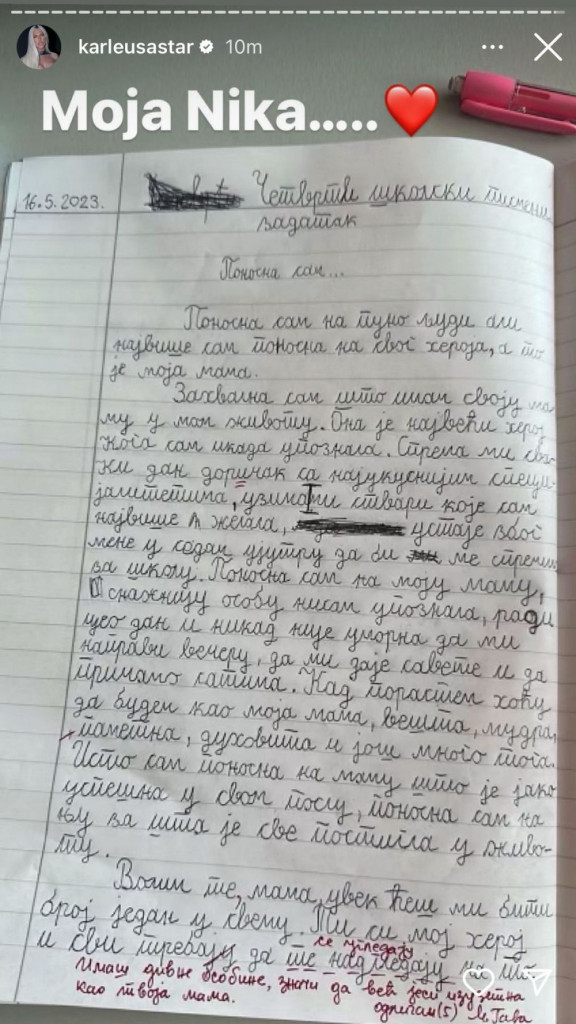 karleusastar 10m
Моја Nika.....
16.5.2023.
Четврти школски писмени
задатак
Поносна сам...
Поносна сам на пуно људи али
највише сам поносна на свог хероја, а то
је моја мама.
Захвална сам што имам своју ма-
му у мом животу. Она је највећи херој
кога сам икада упознала. Спрема ми сва-
ки дан доричак са најукуснијим специ-
јалитетима, узима ми ствари које сам
највише желела, устаје због
мене у седам ујутру да би ме спремила
за школу. Поносна сам на моју маму,
снажнију особу нисам упознала, ради
цео дан и никад није уморна да ми
направи вечеру, да ми даје савете и да
причамо сатима. Кад порастем хоћу
да будем као моја мама, вешта, мудра,
паметна, духовита и још много тога.
Исто сам поносна на маму што је јако
успешна у свом послу, поносна сам на
њу за шта је све постигла у живо-
ту.
Волим те, мама, увек ћеш ми бити
број један у свету. Ти си мој херој
се угледају
и сви требају да те надгледају на
Имаш дивне особине, значи да већ јеси изузетна
као твоја мама.
одличан (5)